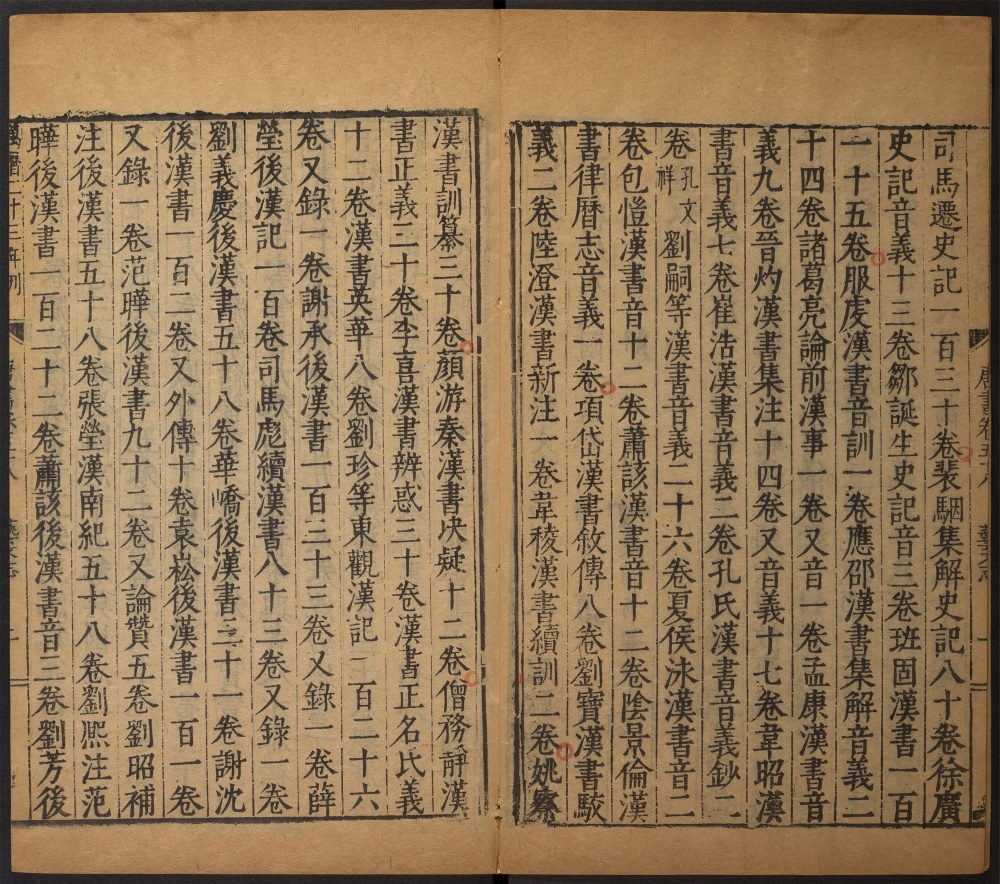 唐書卷五十八
司馬遷史記一百三十卷裴駰集解史記八十卷徐廣
史記音義十三卷鄒誕生史記音三卷班固漢書一百
一十五卷服虔漢書音訓一卷應邵漢書集解音義二
十四卷諸葛亮論前漢事一卷又音一卷孟康漢書音
義九卷晉灼漢書集注十四卷又音義十七卷韋昭漢
書音義七卷崔浩漢書音義二卷孔氏漢書音義鈔二
卷孔文祥劉嗣等漢書音義二十六卷夏侯泳漢書音二
卷包愷漢書音十二卷蕭該漢書音十二卷陰景倫漢
書律曆志音義一卷項岱漢書敘傳八卷劉寶漢書駮
義二卷陸澄漢書新注一卷韋稜漢書續訓二卷姚察
漢書訓纂三十卷顏游秦漢書决疑十二卷僧務靜漢
書正義三十卷李喜漢書辨惑三十卷漢書正名氏義
十二卷漢書英華八卷劉珍等東觀漢記一百二十六
卷又錄一卷謝承後漢書一百三十三卷又錄一卷薛
瑩後漢記一百卷司馬彪續漢書八十三卷又錄一卷
劉義慶後漢書五十八卷華嶠後漢書三十一卷謝沈
後漢書一百二卷又外傳十卷袁崧後漢書一百一卷
又錄一卷范曄後漢書九十二卷又論贊五卷劉昭補
注後漢書五十八卷張瑩漢南紀五十八卷劉熈注范
曄後漢書一百二十二卷蕭該後漢書音三卷劉芳後